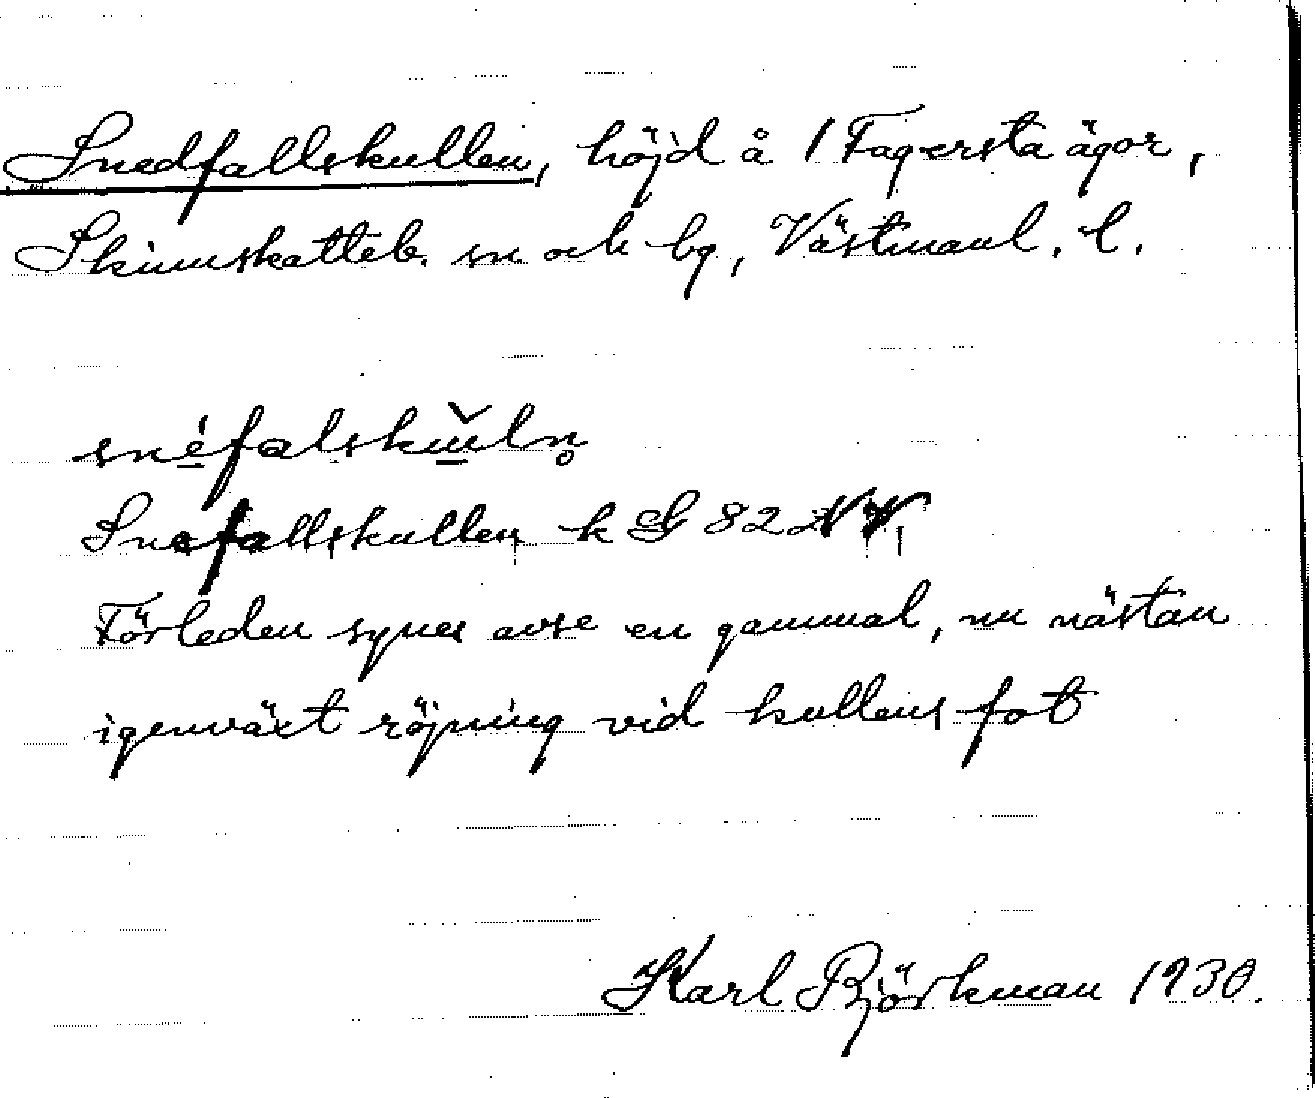 Snedfallskullen, höjd å / Fagersta ägor,
Skinnskatteb. sn och bg, Västmanl. l.
snéfalskuln̥
Snefallskullen k G 82 NV
Förleden synes avse en gammal, nu nästan
igenväxt röjning vid kullens fot
Karl Björkman 1930.